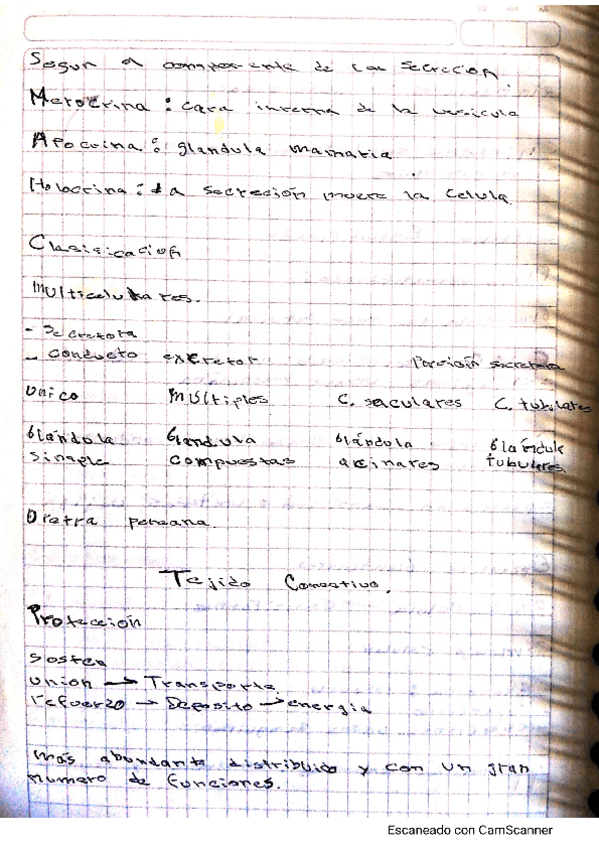 Segun el componente de la secreción.
Merocrina : cara interna de la vesicula
Apocrina : glandula mamaria
Holocrina : la secreción muere la celula.
Clasificación
Multicelulares.
- Secretora
- conducto excretor Porción secretora
Unico Múltiples C. saculares C. tubulares
Glándula Glandula Glándula Glándula
simple compuestas acinares tubulares
Uretra peneana.
Tejido Conectivo.
Protección
sosten
union → Transporte
refuerzo → Deposito → energia
más abundante distribuido y con un gran
numero de funciones.
Escaneado con CamScanner